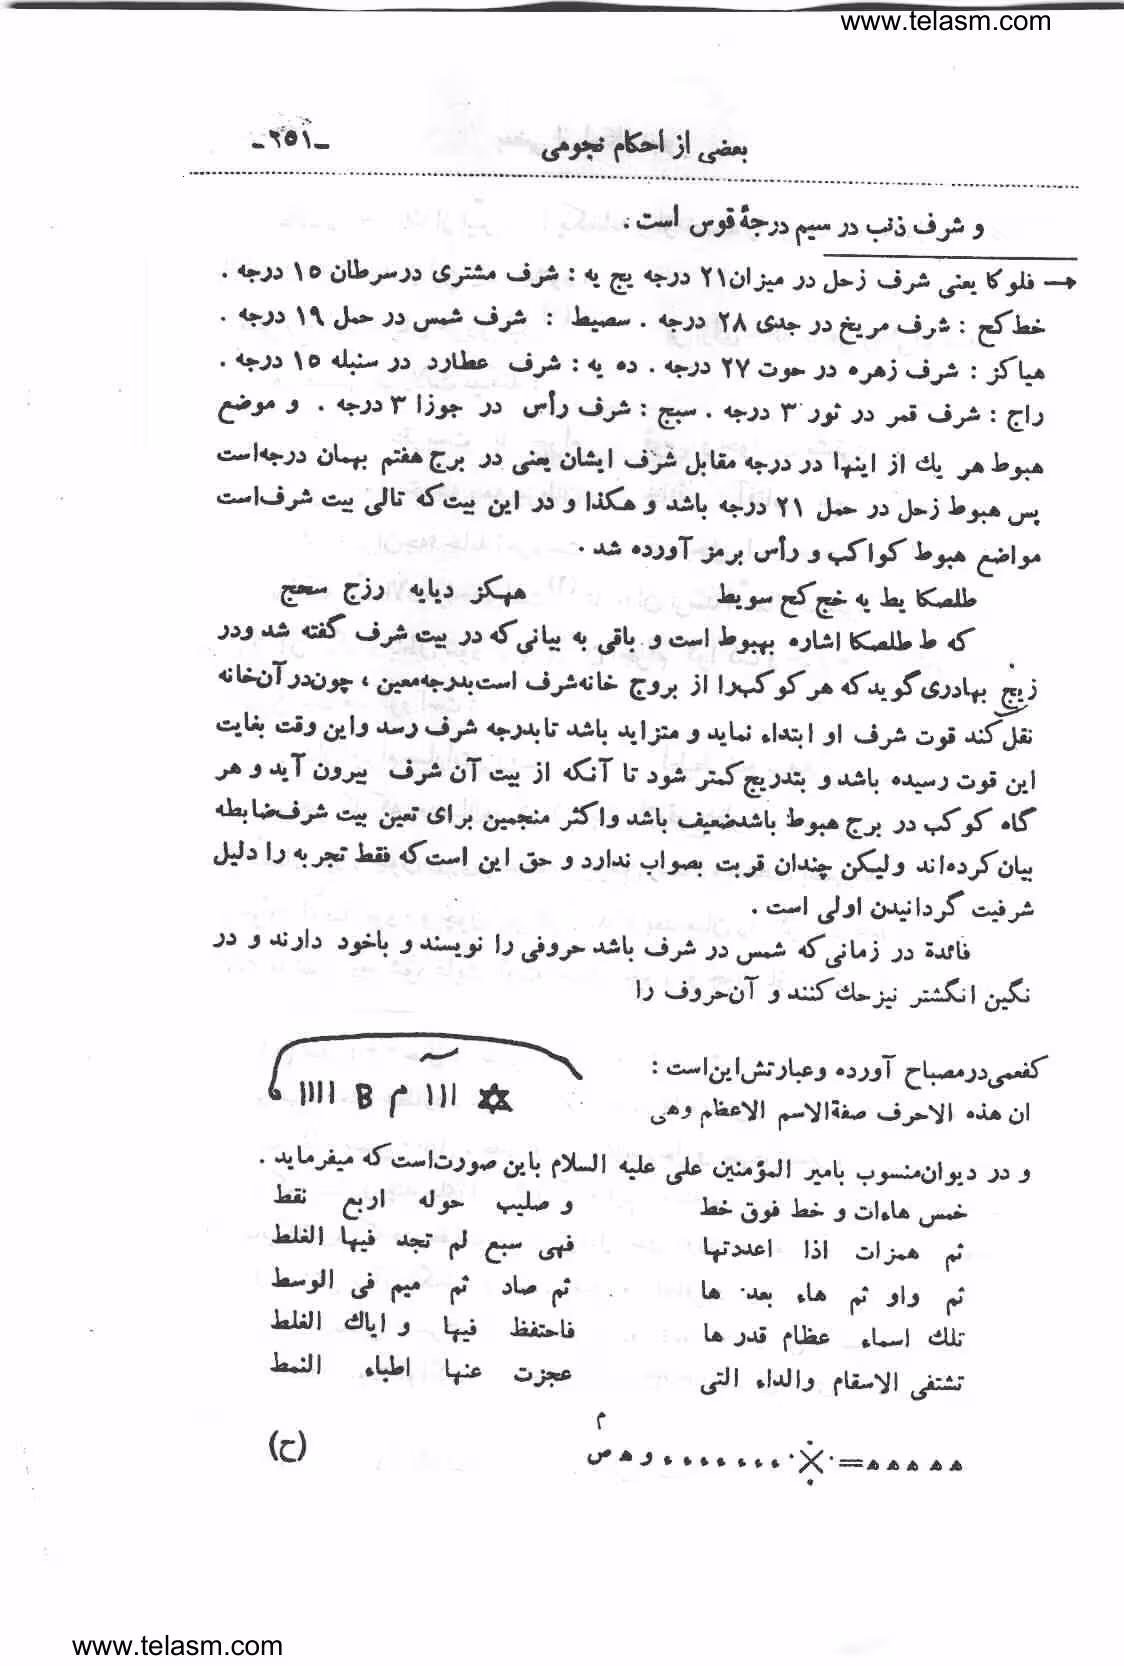 www.telasm.com
بعضی از احکام نجومی -۲۵۱-
و شرف ذنب در سیم درجهٔ قوس است .
فلو کا یعنی شرف زحل در میزان ۲۱ درجه یج یه : شرف مشتری در سرطان ۱۵ درجه .
خط کح : شرف مریخ در جدی ۲۸ درجه . سصیط : شرف شمس در حمل ۱۹ درجه .
هیاکز : شرف زهره در حوت ۲۷ درجه . ده یه : شرف عطارد در سنبله ۱۵ درجه .
راج : شرف قمر در ثور ۳ درجه . سبج : شرف رأس در جوزا ۳ درجه . و موضع
هبوط هر یك از اینها در درجه مقابل شرف ایشان یعنی در برج هفتم بهمان درجه است
پس هبوط زحل در حمل ۲۱ درجه باشد و هکذا و در این بیت که تالی بیت شرف است
مواضع هبوط کواکب و رأس برمز آورده شد .
طلصکا یط یه خج کح سویط هپکز دیایه رزج سحج
که ط طلصکا اشاره بهبوط است و باقی به بیانی که در بیت شرف گفته شد و در
زیج بهادری گوید که هر کوکب را از بروج خانه شرف است بدرجه معین ، چون در آن خانه
نقل کند قوت شرف او ابتداء نماید و متزاید باشد تا بدرجه شرف رسد و این وقت بغایت
این قوت رسیده باشد و بتدریج کمتر شود تا آنکه از بیت آن شرف بیرون آید و هر
گاه کوکب در برج هبوط باشد ضعیف باشد و اکثر منجمین برای تعین بیت شرف ضابطه
بیان کرده اند ولیکن چندان قربت بصواب ندارد و حق این است که فقط تجربه را دلیل
شرفیت گردانیدن اولی است .
فائدة در زمانی که شمس در شرف باشد حروفی را نویسند و با خود دارند و در
نگین انگشتر نیز حك کنند و آن حروف را
کفعمی در مصباح آورده و عبارتش این است :
ان هذه الاحرف صفة الاسم الاعظم وهی ✡ ااا م B اااا
و در دیوان منسوب بامیر المؤمنین علی علیه السلام باین صورت است که میفرماید .
خمس هاءات و خط فوق خط و صلیب حوله اربع نقط
ثم همزات اذا اعددتها فهی سبع لم تجد فیها الغلط
ثم واو ثم هاء بعد ها ثم صاد ثم میم فی الوسط
تلك اسماء عظام قدر ها فاحتفظ فیها و ایاك الغلط
تشتفی الاسقام والداء التی عجزت عنها اطباء النمط
ه ه ه ه ه = ※ ء ء ء ء ء ء ء و ه ص م (ح)
www.telasm.com